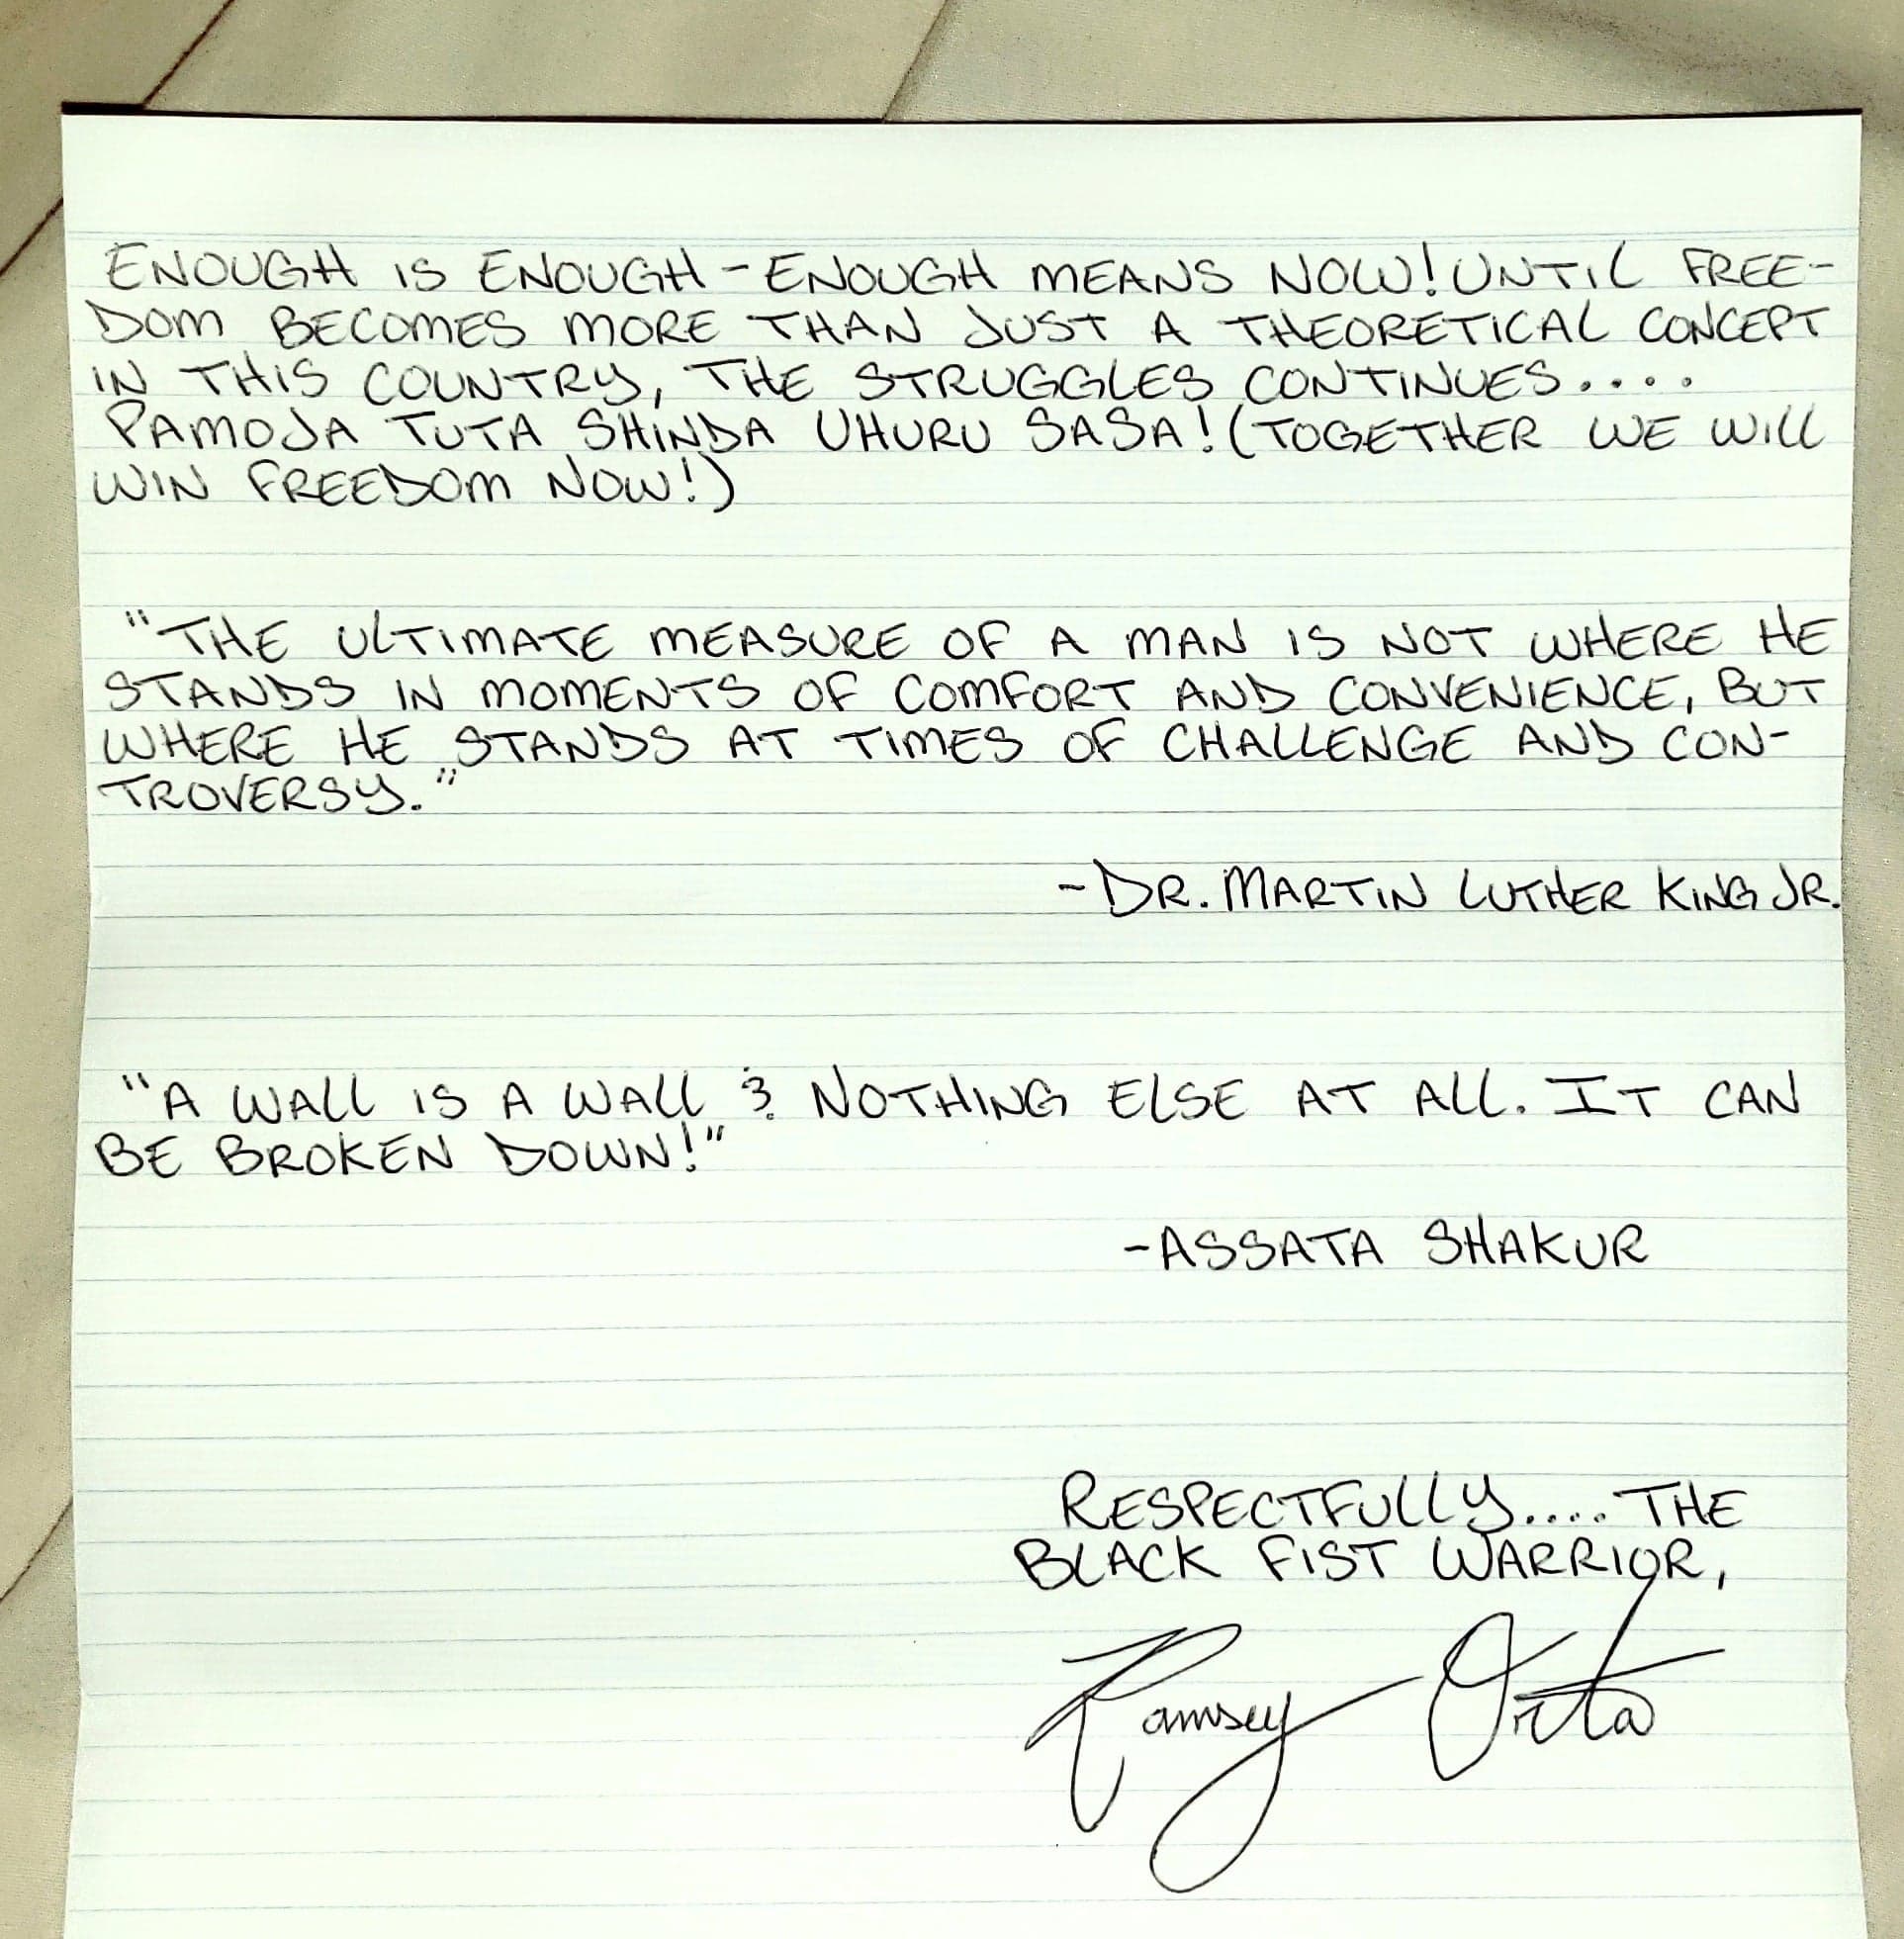 ENOUGH IS ENOUGH - ENOUGH MEANS NOW! UNTIL FREE-
DOM BECOMES MORE THAN JUST A THEORETICAL CONCEPT
IN THIS COUNTRY, THE STRUGGLES CONTINUES....
PAMOJA TUTA SHINDA UHURU SASA! (TOGETHER WE WILL
WIN FREEDOM NOW!)
"THE ULTIMATE MEASURE OF A MAN IS NOT WHERE HE
STANDS IN MOMENTS OF COMFORT AND CONVENIENCE, BUT
WHERE HE STANDS AT TIMES OF CHALLENGE AND CON-
TROVERSY."
-DR. MARTIN LUTHER KING JR.
"A WALL IS A WALL & NOTHING ELSE AT ALL. IT CAN
BE BROKEN DOWN!"
-ASSATA SHAKUR
RESPECTFULLY.... THE
BLACK FIST WARRIOR,
Ramsey Orta